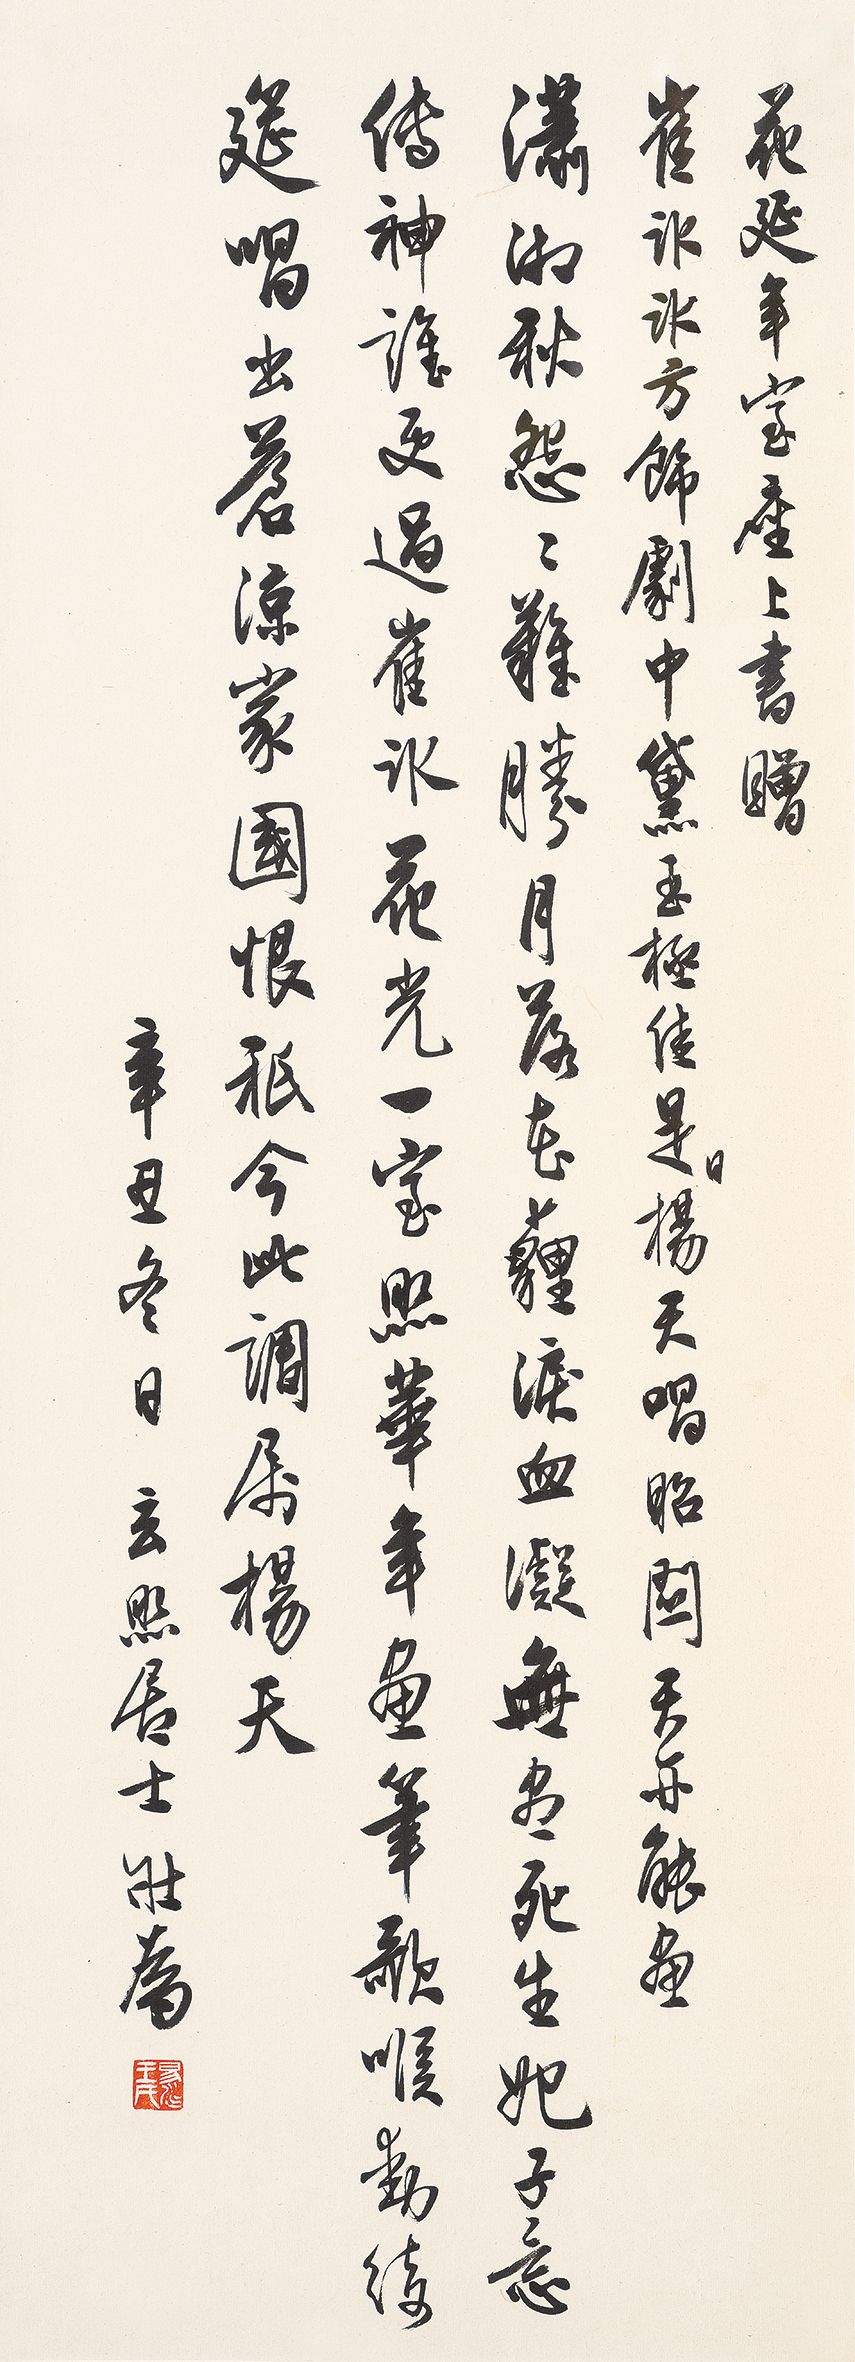 花延年室座上書贈
崔冰冰方飾劇中黛玉極佳是日楊天唱昭關天亦能畫
瀟湘秋怨〻難勝月落花薶淚血凝無盡死生妃子意
傳神誰更過崔冰花光一室照華年畫筆歌喉動綺
筵唱出蒼涼家國恨秖今此調屬楊天
辛丑冬日玄照居士壯為